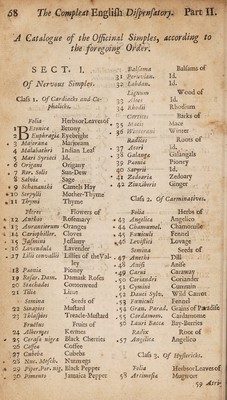 68 The Compleat English Dispensatory. Part II.
A Catalogue of the Officinal Simples, according to
the foregoing Order.
SECT. I.
Of Nervous Simples.
Class 1. Of Cardiacks and Cephalicks.
Folia Herbs or Leaves of
1 Betonica Betony
2 Euphragia Eyebright
3 Majorana Marjoram
4 Malabathri Indian Leaf
5 Mari Syriaci Id.
6 Origani Origany
7 Ror. Solis Sun-Dew
8 Salvia Sage
9 Schœnanthi Camels Hay
10 Serpylli Mother-Thyme
11 Thymi Thyme
Flores Flowers of
12 Anthos Rosemary
13 Aurantiorum Oranges
14 Cariophillor. Cloves
15 Jasmini Jessamy
16 Lavendula Lavender
17 Lilii convallii Lillies of the Valley
18 Pæonia Piony
19 Rosar. Dam. Damask Roses
20 Stœchados Cottonweed
21 Tilia Lime
Semina Seeds of
22 Sinapios Mustard
23 Thlaspios Treacle-Mustard
Fructus Fruits of
24 Alkermes Kermes
25 Cerasa nigra Black Cherries
26 Coffea Coffee
27 Cubeba Cubebs
28 Nux. Mosch. Nutmegs
29 Piper. Por. nig. Black Pepper
30 Pimento Jamaica Pepper
Balsama Balsams of
31 Peruvian. Id.
32 Labdan. Id.
Lignum Wood of
33 Aloes Id.
34 Rhodii Rhodium
Cortices Barks of
35 Macis Mace
36 Winteranus Winter
Radices Roots of
37 Acori Id.
38 Galanga Galangals
39 Pæonia Piony
40 Satyrii Id.
41 Zedoaria Zedoary
42 Zinziberis Ginger
Class 2. Of Carminatives.
Folia Herbs of
43 Angelica Angelica
44 Chamæmel. Chamomile
45 Fœniculi Fennel
46 Levistici Lovage
Semina Seeds of
47 Anethi Dill
48 Anisi Anise
49 Carui Caraway
50 Coriandri Coriander
51 Cymini Cummin
52 Dauci Sylv. Wild Carrot
53 Fœniculi Fennel
54 Gran. Parad. Grains of Paradise
55 Cardamom. Cardamoms
56 Lauri Bacca Bay-Berries
Radix Root of
57 Angelica Angelica
Class 3. Of Hystericks.
Folia Herbs or Leaves of
58 Artimesia Mugwort
59 Atri-